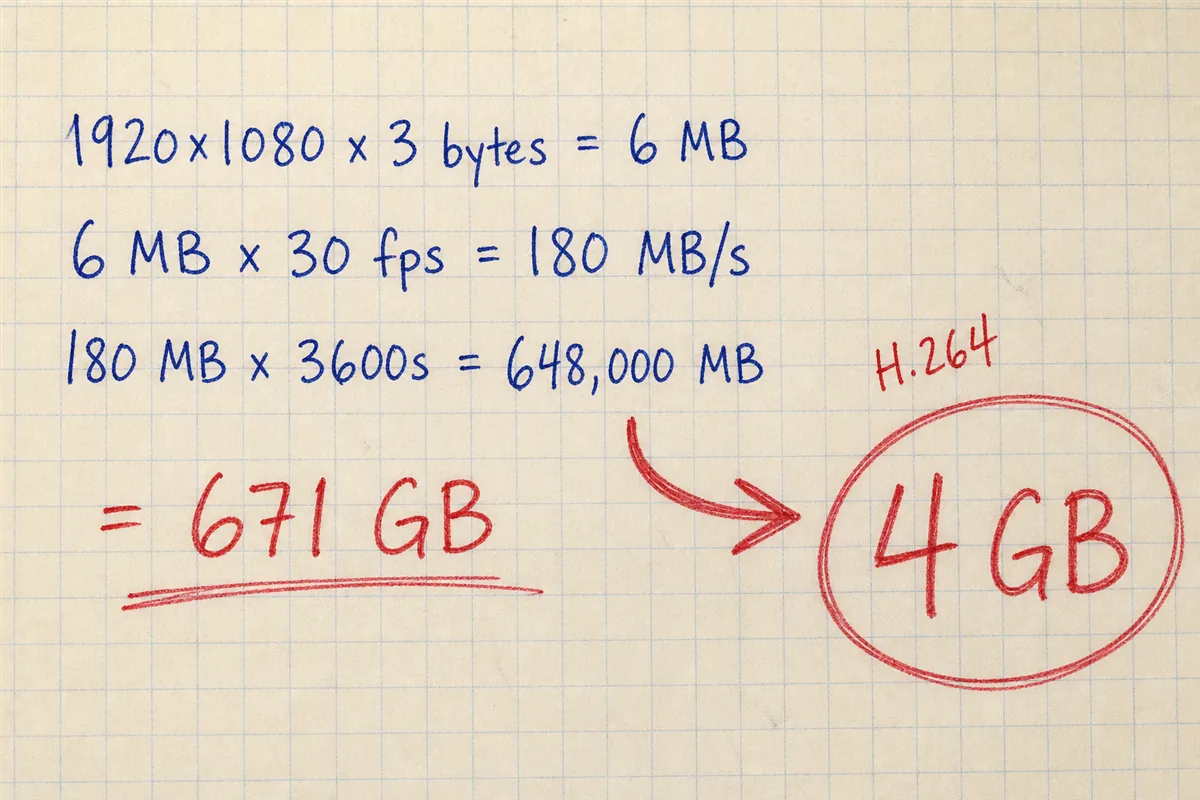 1920×1080 × 3 bytes = 6 MB
6 MB × 30 fps = 180 MB/s
180 MB × 3600s = 648,000 MB
= 671 GB
H.264
4 GB